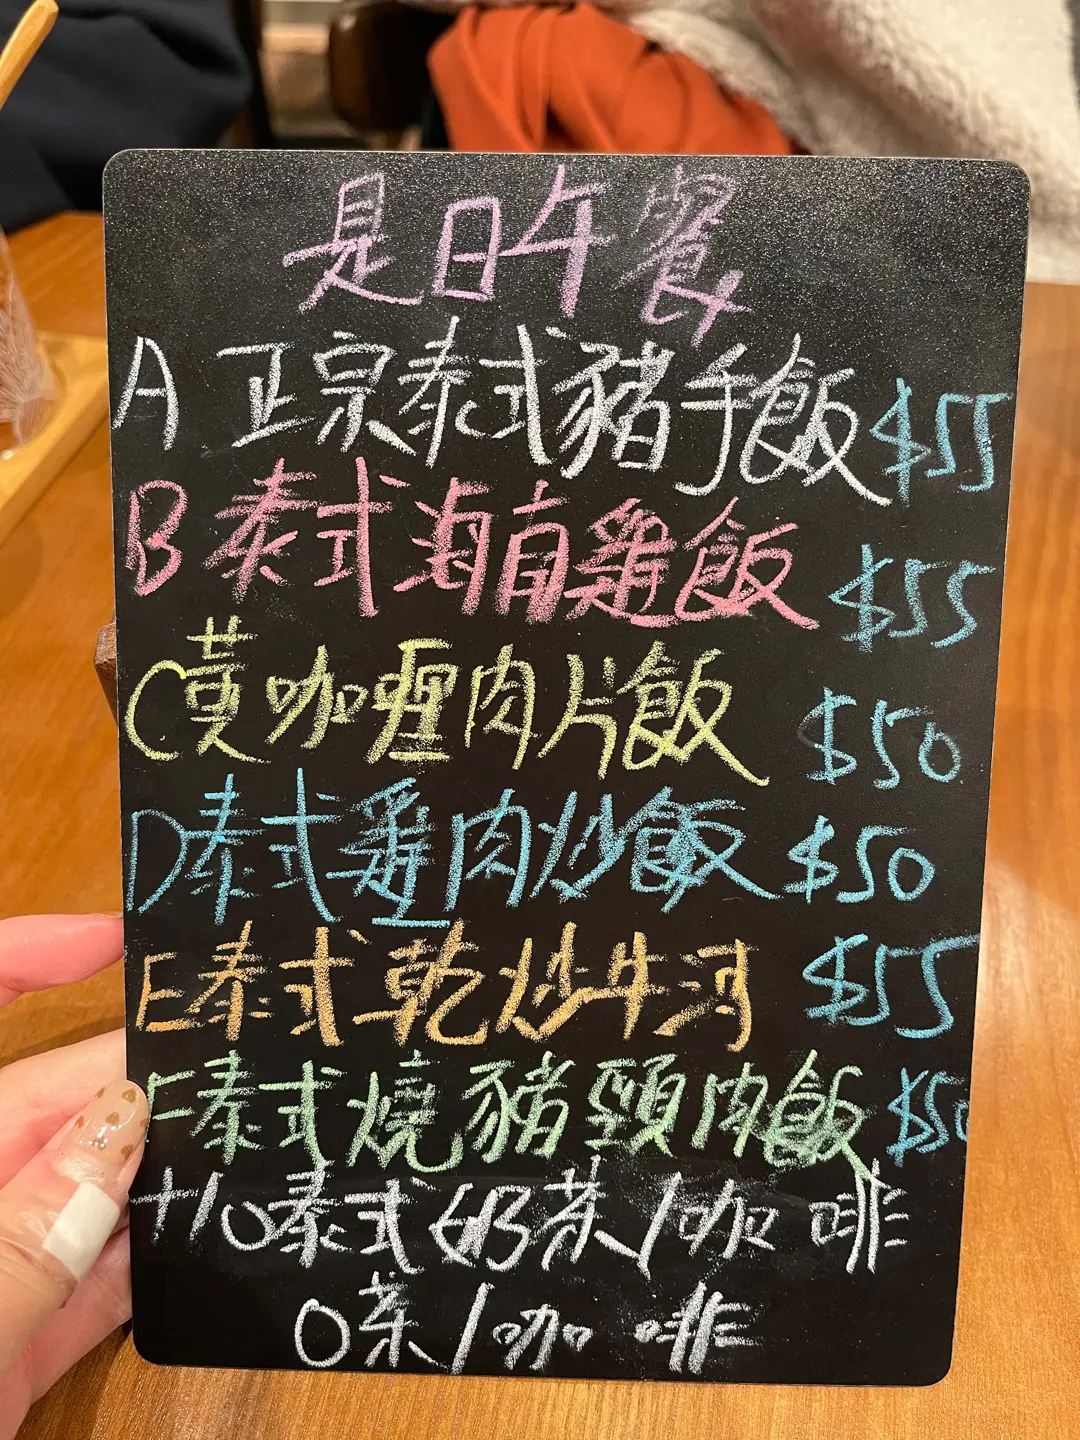 是日午餐
A 正宗泰式豬手飯 $55
B 泰式海南雞飯 $55
C 黃咖喱肉片飯 $50
D 泰式雞肉炒飯 $50
E 泰式乾炒牛河 $55
F 泰式燒豬頸肉飯 $50
+10 泰式奶茶/咖啡
0茶/咖啡